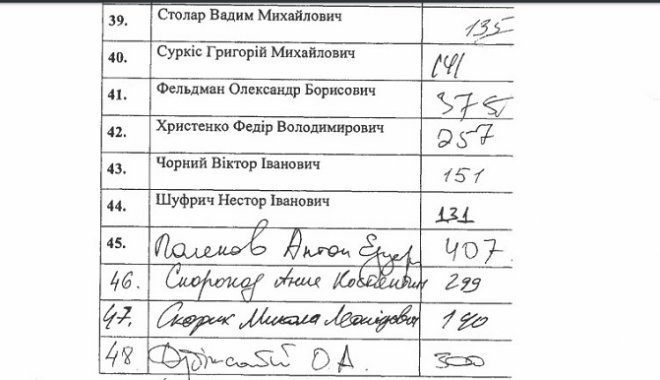 39. Столар Вадим Михайлович 135
40. Суркіс Григорій Михайлович 141
41. Фельдман Олександр Борисович 375
42. Христенко Федір Володимирович 257
43. Чорний Віктор Іванович 151
44. Шуфрич Нестор Іванович 131
45. Антон 407
46. Скороход Анна 299
47. Скорик Микола Леонідович 190
48. О.А. 300